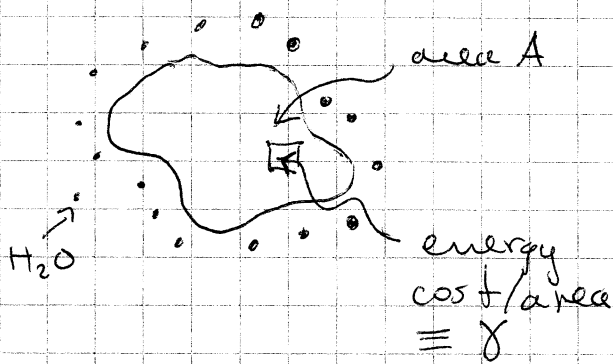 area A
H₂O
energy
cost/area
≡ γ